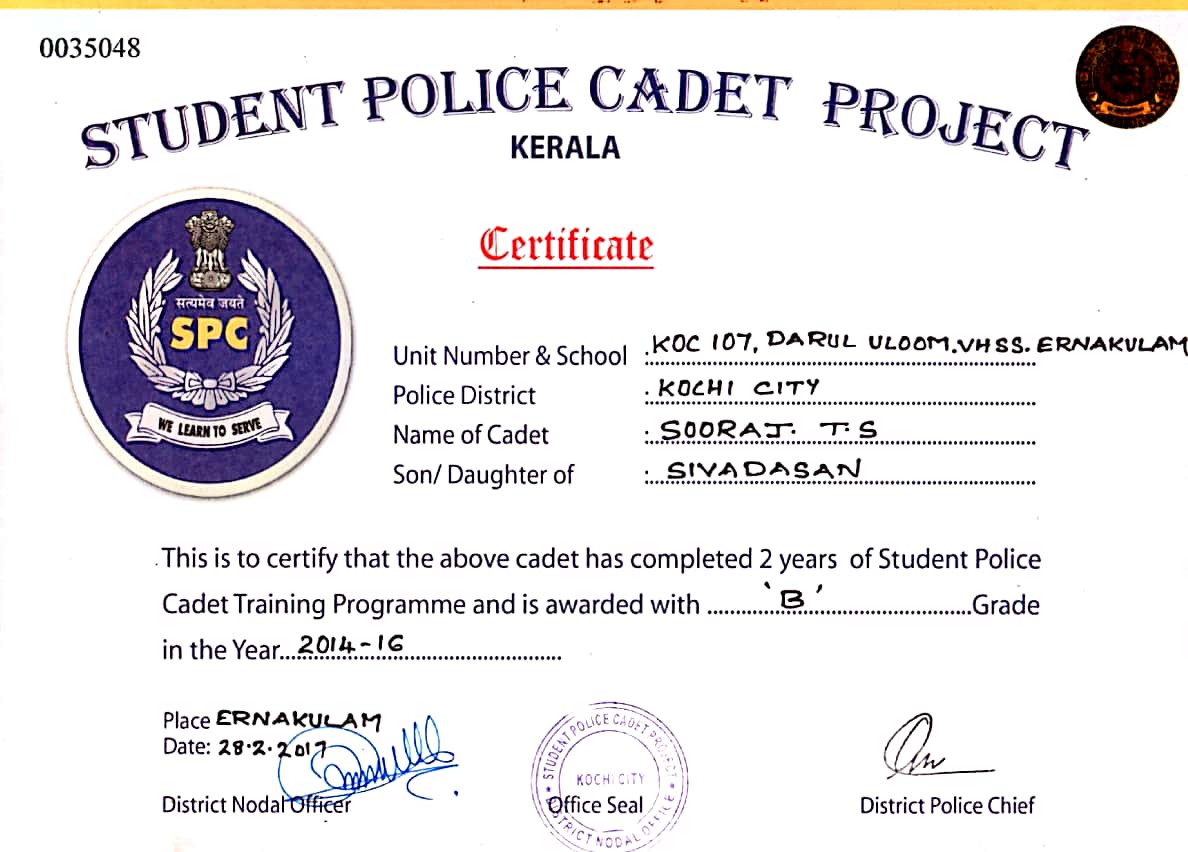 0035048
STUDENT POLICE CADET PROJECT
KERALA
सत्यमेव जयते
SPC
WE LEARN TO SERVE
Certificate
Unit Number & School : KOC 107, DARUL ULOOM.VHSS. ERNAKULAM
Police District : KOCHI CITY
Name of Cadet : SOORAJ. T.S
Son/ Daughter of : SIVADASAN
This is to certify that the above cadet has completed 2 years of Student Police
Cadet Training Programme and is awarded with 'B' Grade
in the Year 2014-16
Place ERNAKULAM
Date: 28.2.2017
District Nodal Officer
STUDENT POLICE CADET PROJECT
KOCHI CITY
Office Seal
DISTRICT NODAL OFFICE
District Police Chief